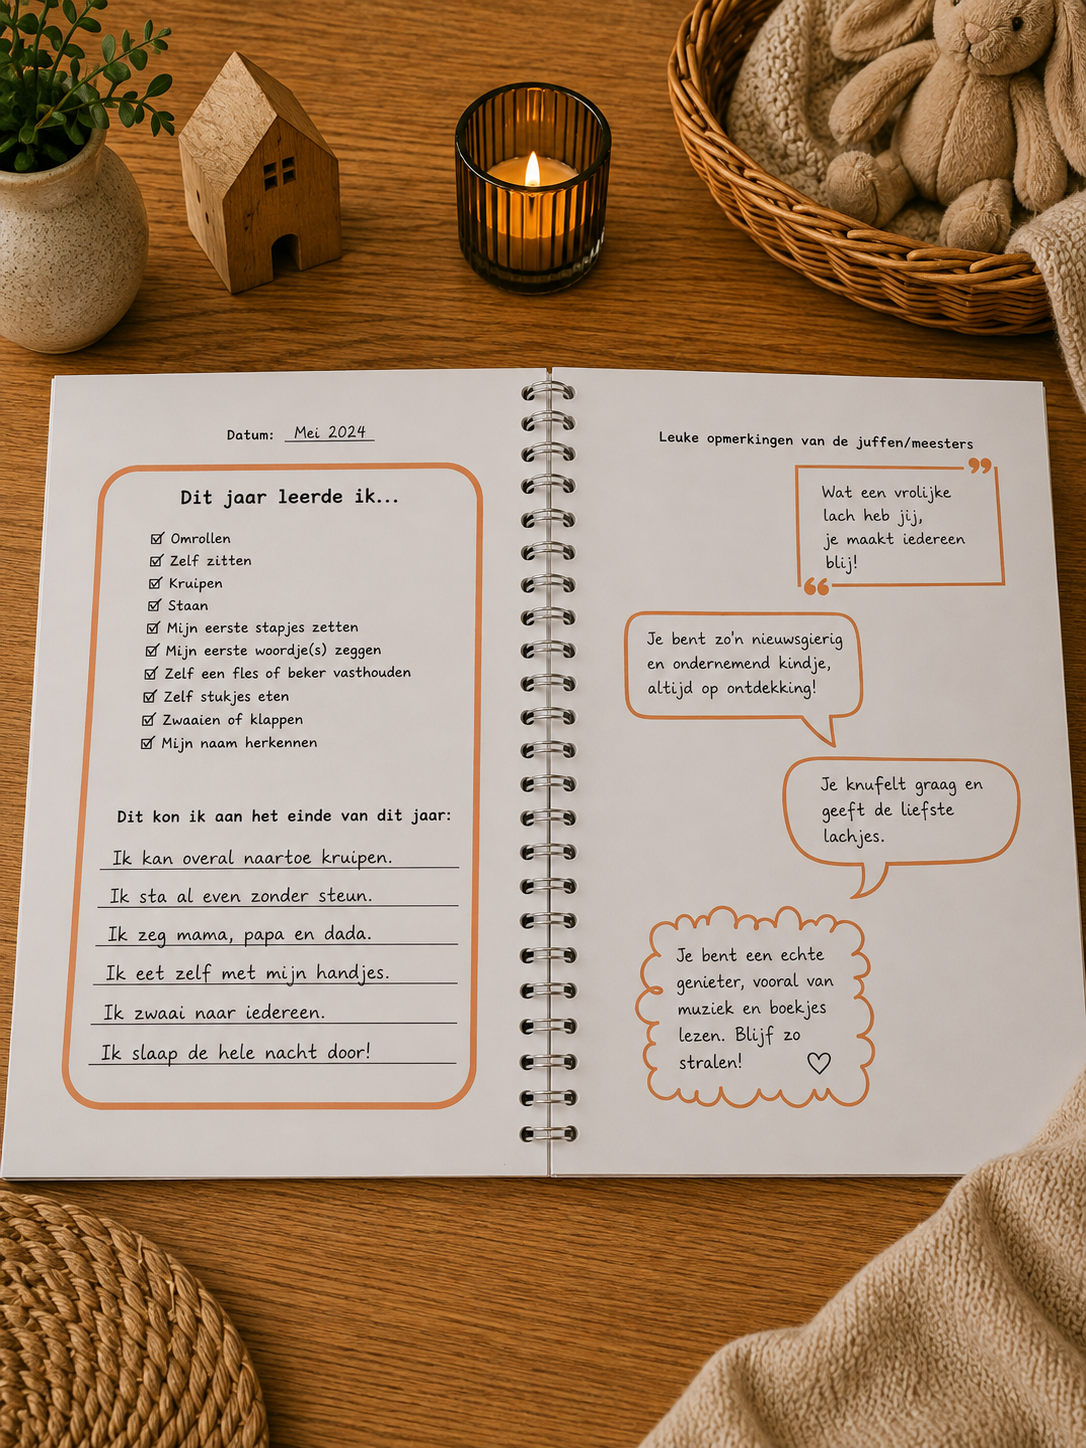 Datum: Mei 2024
Dit jaar leerde ik...
☑ Omrollen
☑ Zelf zitten
☑ Kruipen
☑ Staan
☑ Mijn eerste stapjes zetten
☑ Mijn eerste woordje(s) zeggen
☑ Zelf een fles of beker vasthouden
☑ Zelf stukjes eten
☑ Zwaaien of klappen
☑ Mijn naam herkennen
Dit kon ik aan het einde van dit jaar:
Ik kan overal naartoe kruipen.
Ik sta al even zonder steun.
Ik zeg mama, papa en dada.
Ik eet zelf met mijn handjes.
Ik zwaai naar iedereen.
Ik slaap de hele nacht door!
Leuke opmerkingen van de juffen/meesters
Wat een vrolijke
lach heb jij,
je maakt iedereen
blij!
Je bent zo'n nieuwsgierig
en ondernemend kindje,
altijd op ontdekking!
Je knufelt graag en
geeft de liefste
lachjes.
Je bent een echte
genieter, vooral van
muziek en boekjes
lezen. Blijf zo
stralen! ♡